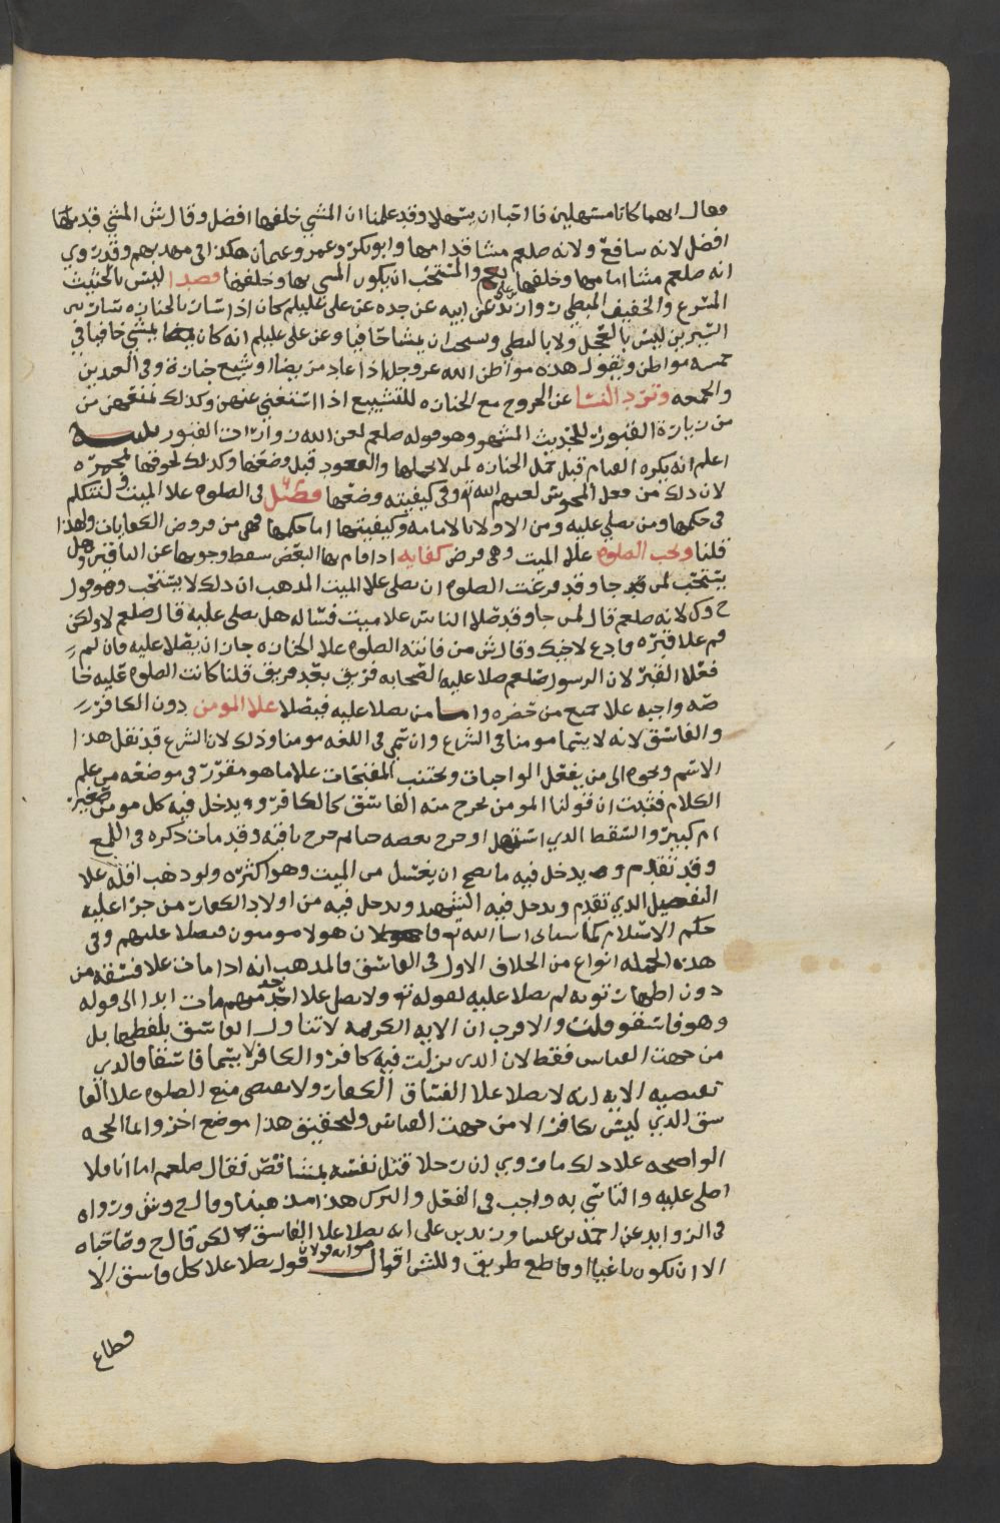 فقال انهما كانا مسهلين فا احبا ان يسهلا وقد علمنا ان المشي خلفها افضل وقال ش المشي قدامها
افضل لانه شافع ولانه صلعم مشا قدامها وابو بكر وعمر وعثمان هكذا في مهذبهم وقد روي
انه صلعم مشا امامها وخلفها والمستحب ان يكون المشي بها وخلفها قصدا ليس بالخثيث
المسرع والخفيف المبطي زيد عن ابيه عن جده عن علي عليلم كان اذا سار بالجنازه سار بين
السيرين ليس بالعجل ولا بالبطي ويستحب ان يمشا حافيا وعن علي عليلم انه كان يمشي حافيا في
خمسه مواطن ويقول هذه مواطن الله عز وجل اذا عاد مريضا او شيع جنازة وفي العيدين
والجمعه وترد النسا عن الخروج مع الجنازه للتشييع اذا استغني عنهن وكذلك تمنعهن من
من زيارة القبور للحديث المشهور وهو قوله صلعم لعن الله زوارات القبور تنبيه
اعلم انه يكره القيام قبل حمل الجنازه لمن لا يحملها والقعود قبل وضعها وكذلك لحوقها بمجمره
لان ذلك من فعل المجوس لعنهم الله تع وفي كيفيته وضعها فصل في الصلوه علا الميت ولنتكلم
في حكمها ومن يصلي عليه ومن الاولا بالامامه وكيفيتها اما حكمها فهي من فروض الكفايات ولهذا
قلنا وتجب الصلوه علا الميت وهي فرض كفايه اذا قام بها البعض سقط وجوبها عن الباقين وهل
يستحب لمن قد جا وقد فرغت الصلوه ان يصلي علا الميت المذهب ان ذلك لا يستحب وهو قول
ح وك لانه صلعم قال لمن جا وقد صلا الناس علا ميت فساله هل يصلي عليه قال صلعم لا ولكن
قم علا قبره وادع لاخيك وقال ش من فاتته الصلوه علا الجنازه جاز ان يصلا عليه فان لم
فعلا القبر لان الرسول صلعم صلا عليه الصحابه فريق بعد فريق قلنا كانت الصلوه عليه خا
صه واجبه علا جميع من حضره واما من يصلا عليه فيصلا علا المومن دون الكافر
والفاسق لانه لا يسما مومنا في الشرع وان سمي في اللغه مومنا وذلك لان الشرع قد نقل هذا
الاسم ونحوه الى من يفعل الواجبات ويجتنب المقبحات علا ما هو مقرر في موضعه من علم
الكلام فثبت ان قولنا المومن يخرج منه الفاسق كالكافر ويدخل فيه كل مومن صغير
ام كبير والسقط الذي استهل او خرج بعضه حيا ثم خرج باقيه وقد مات ذكره في اللمع
وقد تقدم ويدخل فيه ما يصح ان يغسل من الميت وهو اكثره ولو ذهب اقله علا
التفصيل الذي تقدم ويدخل فيه الشهيد ويدخل فيه من اولاد الكفار من جرا عليه
حكم الاسلام كما سياتي ان شا الله تع فان هولا مومنون فيصلا عليهم وفي
هذه الجمله انواع من الخلاف الاول في الفاسق فالمذهب انه اذا مات علا فسقه من
دون اظهار توبه لم يصلا عليه لقوله تع ولا تصل علا احد منهم مات ابدا الى قوله
وهو فاسقو قلت والاقرب ان الايه الكريمه لا تناول الفاسق بلفظها بل
من جهت القياس فقط لان الذي نزلت فيه كافر والكافر لا يسما فاسقا فالذي
تقتضيه الايه انه لا يصلا علا الفساق الكفار ولا يقتضي منع الصلوه علا الفا
سق الذي ليس بكافر الا من جهت القياس ولتحقيق هذا موضع اخر وانما الحجه
الواضحه علا ذلك ما روي ان رجلا قتل نفسه بمشاقص فقال صلعم اما انا فلا
اصلي عليه والتاسي به واجب في الفعل والترك هذا مذهبنا وقال ح وش ورواه
في الزوايد عن احمد بن عيسا وزيد بن علي انه يصلا علا الفاسق لكن قال ح وصاحباه
الا ان يكون باغيا او قاطع طريق وللش اقوال قول يصلا علا كل فاسق الا
قطاع